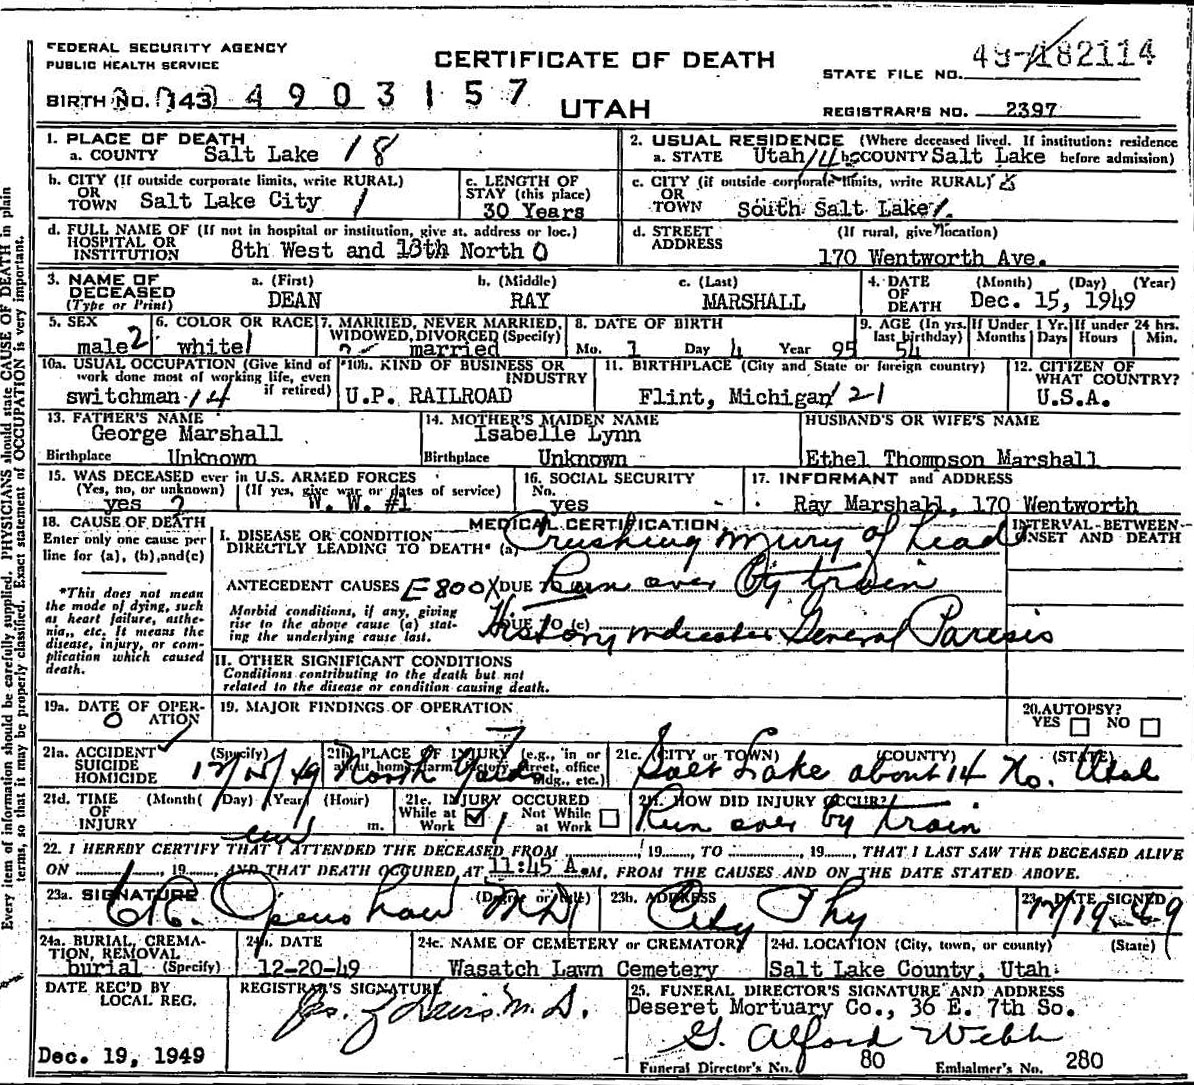 FEDERAL SECURITY AGENCY
PUBLIC HEALTH SERVICE
CERTIFICATE OF DEATH
UTAH
49-182114
STATE FILE NO.
BIRTH NO. 143 4903157
REGISTRAR'S NO. 2397
1. PLACE OF DEATH
a. COUNTY Salt Lake 18
2. USUAL RESIDENCE (Where deceased lived. If institution: residence before admission)
a. STATE Utah 14 b. COUNTY Salt Lake
b. CITY (If outside corporate limits, write RURAL)
OR
TOWN Salt Lake City 1
c. LENGTH OF
STAY (this place)
30 Years
c. CITY (if outside corporate limits, write RURAL)
OR
TOWN South Salt Lake
d. FULL NAME OF (If not in hospital or institution, give st. address or loc.)
HOSPITAL OR
INSTITUTION 8th West and 13th North 0
d. STREET (If rural, give location)
ADDRESS 170 Wentworth Ave.
3. NAME OF DECEASED
(Type or Print)
a. (First) DEAN
b. (Middle) RAY
c. (Last) MARSHALL
4. DATE OF DEATH (Month) (Day) (Year)
Dec. 15, 1949
5. SEX
male 2
6. COLOR OR RACE
white 1
7. MARRIED, NEVER MARRIED, WIDOWED, DIVORCED (Specify)
2 married
8. DATE OF BIRTH
Mo. 1 Day 4 Year 95
9. AGE (In yrs. last birthday) 54
If Under 1 Yr. Months Days
If under 24 hrs. Hours Min.
10a. USUAL OCCUPATION (Give kind of work done most of working life, even if retired)
switchman 14
10b. KIND OF BUSINESS OR INDUSTRY
U.P. RAILROAD
11. BIRTHPLACE (City and State or foreign country)
Flint, Michigan 21
12. CITIZEN OF WHAT COUNTRY?
U.S.A.
13. FATHER'S NAME
George Marshall
Birthplace Unknown
14. MOTHER'S MAIDEN NAME
Isabelle Lynn
Birthplace Unknown
HUSBAND'S OR WIFE'S NAME
Ethel Thompson Marshall
15. WAS DECEASED ever in U.S. ARMED FORCES
(Yes, no, or unknown) (If yes, give war or dates of service)
yes 2 W. W. #1
16. SOCIAL SECURITY No.
yes
17. INFORMANT and ADDRESS
Ray Marshall, 170 Wentworth
18. CAUSE OF DEATH
Enter only one cause per line for (a), (b), and (c)
*This does not mean the mode of dying, such as heart failure, asthenia, etc. It means the disease, injury, or complication which caused death.
MEDICAL CERTIFICATION
INTERVAL BETWEEN ONSET AND DEATH
I. DISEASE OR CONDITION
DIRECTLY LEADING TO DEATH* (a) Crushing injury of head
ANTECEDENT CAUSES E800X DUE TO (b) Run over by train
Morbid conditions, if any, giving rise to the above cause (a) stating the underlying cause last.
DUE TO (c) History indicates General Paresis
II. OTHER SIGNIFICANT CONDITIONS
Conditions contributing to the death but not related to the disease or condition causing death.
19a. DATE OF OPERATION
0
19. MAJOR FINDINGS OF OPERATION
20. AUTOPSY?
YES NO
21a. ACCIDENT ✓ (Specify)
SUICIDE
HOMICIDE
12/15/49
21b. PLACE OF INJURY (e.g., in or about home, farm, factory, street, office bldg., etc.)
North Yards
21c. (CITY OR TOWN) (COUNTY) (STATE)
Salt Lake about 14 No. Utah
21d. TIME OF INJURY (Month) (Day) (Year) (Hour) m.
21e. INJURY OCCURED
While at Work ✓ Not While at Work
21f. HOW DID INJURY OCCUR?
Run over by train
22. I HEREBY CERTIFY THAT I ATTENDED THE DECEASED FROM , 19 , TO , 19 , THAT I LAST SAW THE DECEASED ALIVE
ON , 19 AND THAT DEATH OCCURED AT 11:45 A.M, FROM THE CAUSES AND ON THE DATE STATED ABOVE.
23a. SIGNATURE (Degree or title)
Openshaw MD
23b. ADDRESS
City Phy
23c. DATE SIGNED
12/19-49
24a. BURIAL, CREMATION, REMOVAL (Specify)
burial
24b. DATE
12-20-49
24c. NAME OF CEMETERY or CREMATORY
Wasatch Lawn Cemetery
24d. LOCATION (City, town, or county) (State)
Salt Lake County, Utah
DATE REC'D BY LOCAL REG.
Dec. 19, 1949
REGISTRAR'S SIGNATURE
M.D.
25. FUNERAL DIRECTOR'S SIGNATURE AND ADDRESS
Deseret Mortuary Co., 36 E. 7th So.
G. Alford Webb
Funeral Director's No. 80 Embalmer's No. 280
Every item of information should be carefully supplied. PHYSICIANS should state CAUSE OF DEATH in plain
terms, so that it may be properly classified. Exact statement of OCCUPATION is very important.